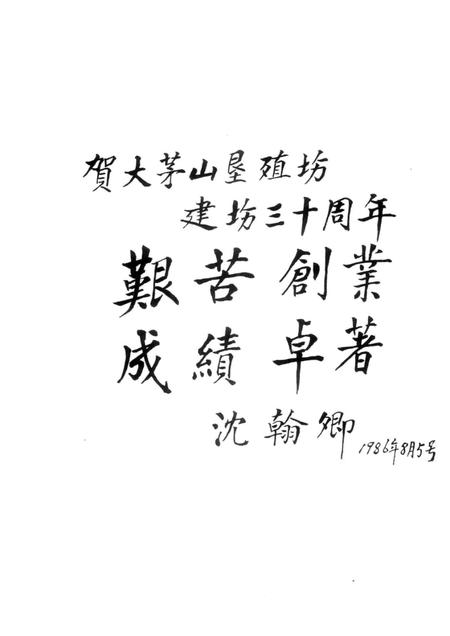 賀大茅山垦殖坊
建坊三十周年
艱苦創業
成績卓著
沈翰卿 1986年8月5号